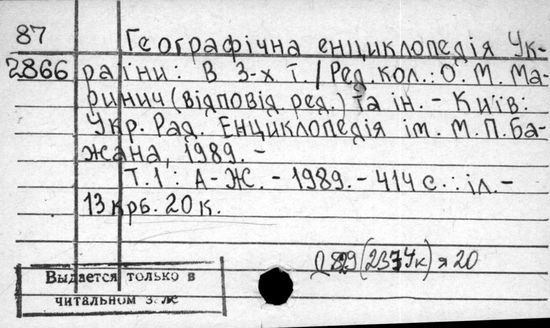 87 Географічна енциклопедія Ук-
2866 раїни: В 3-х т./Ред.кол.: О. М. Ма-
ринич (відповід. ред.) та ін. - Київ:
Укр. Рад. Енциклопедія ім. М. П. Ба-
жана, 1989. -
Т.1: А-Ж. - 1989. - 414 с.: іл. -
13 крб. 20 к.
я 20
Выдается только в
читальном зале